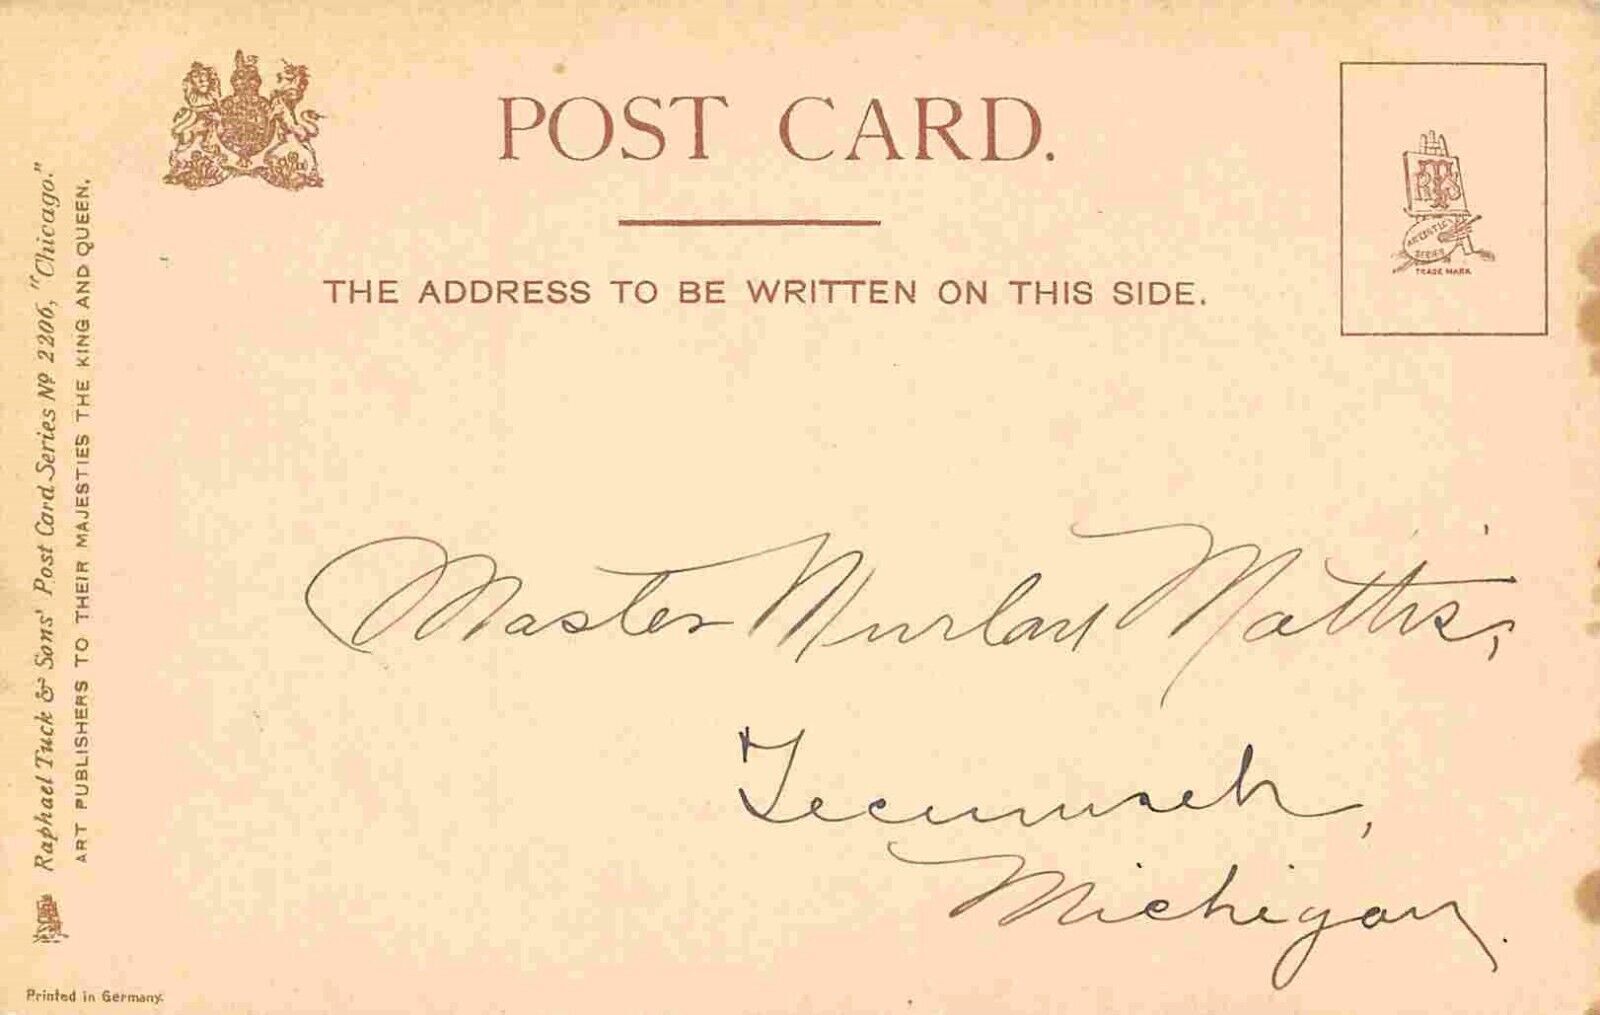 POST CARD.
THE ADDRESS TO BE WRITTEN ON THIS SIDE.
RTS
ARTISTIC
SERIES
TRADE MARK
Raphael Tuck & Sons' Post Card Series Nº 2206, "Chicago."
ART PUBLISHERS TO THEIR MAJESTIES THE KING AND QUEEN.
Master Mattis,
Tecumseh,
Michigan.
Printed in Germany.